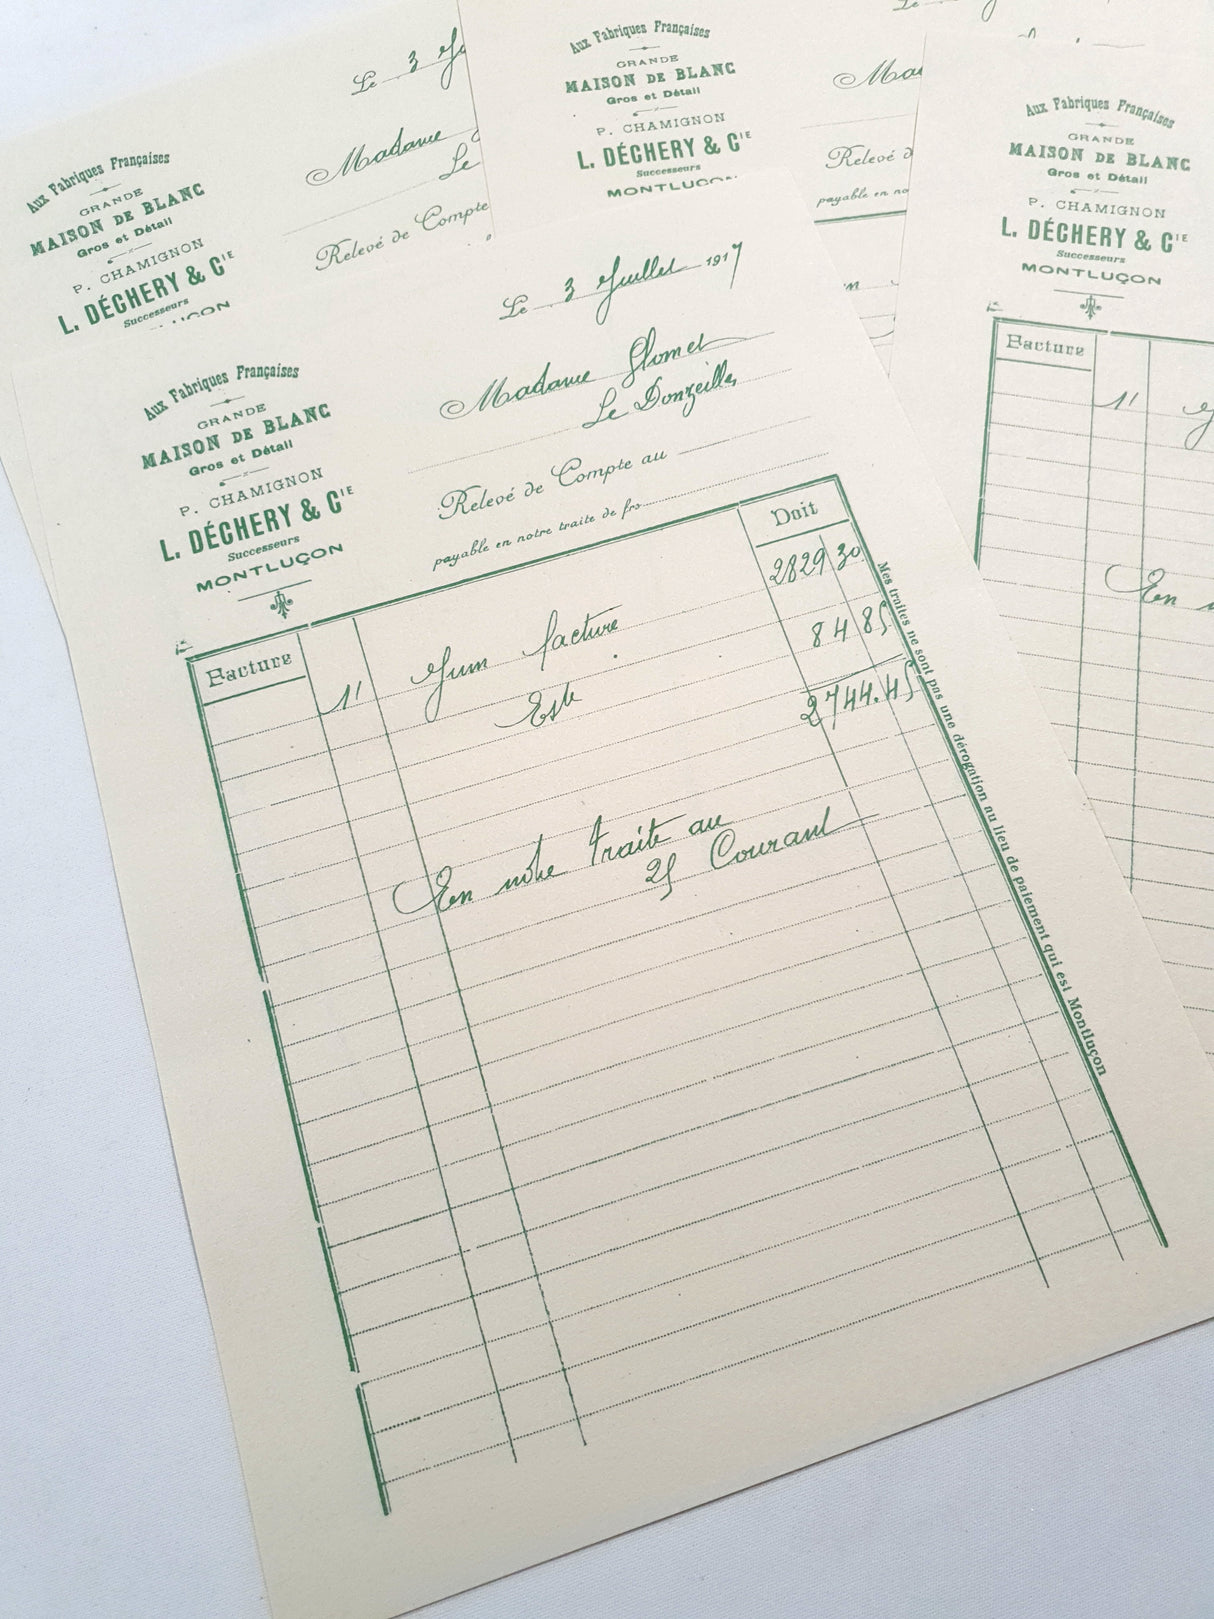 Aux Fabriques Françaises
GRANDE
MAISON DE BLANC
Gros et Détail
P. CHAMIGNON
L. DÉCHERY & CIE
Successeurs
Le 3
Madame
Le
Relevé de Compte
Aux Fabriques Françaises
GRANDE
MAISON DE BLANC
Gros et Détail
P. CHAMIGNON
L. DÉCHERY & CIE
Successeurs
MONTLUÇON
Le
Relevé d
payable en no
Aux Fabriques Françaises
GRANDE
MAISON DE BLANC
Gros et Détail
P. CHAMIGNON
L. DÉCHERY & CIE
Successeurs
MONTLUÇON
Facture
1er
En
Aux Fabriques Françaises
GRANDE
MAISON DE BLANC
Gros et Détail
P. CHAMIGNON
L. DÉCHERY & CIE
Successeurs
MONTLUÇON
Le 3 Juillet 1917
Madame Glomet
Le Donzeille
Relevé de Compte au
payable en notre traite de frs
Facture
Doit
Juin facture 2829 30
84 85
2744.45
En notre traite au
25 Courant
Mes traites ne sont pas une dérogation au lieu de paiement qui est Montluçon